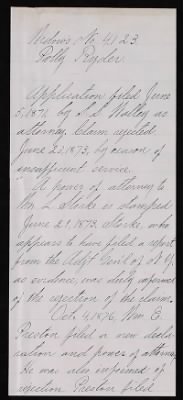 Widows. No. 4123
Polly Ryder.
Application filed June
5, 1871, by S. S. Wattles as
attorney. Claim rejected
June 22, 1873, by reason of
insufficient service.
A power of attorney to
Wm. L. Starke is stamped
June 21, 1873. Starke, who
appears to have filed a report
from the Adjt Genl of N.Y.
as evidence, was duly informed
of the rejection of the claim.
Oct. 4, 1876, Wm. E.
Preston filed a new decla-
ration and power of attorney
He was also informed of
rejection. Preston filed